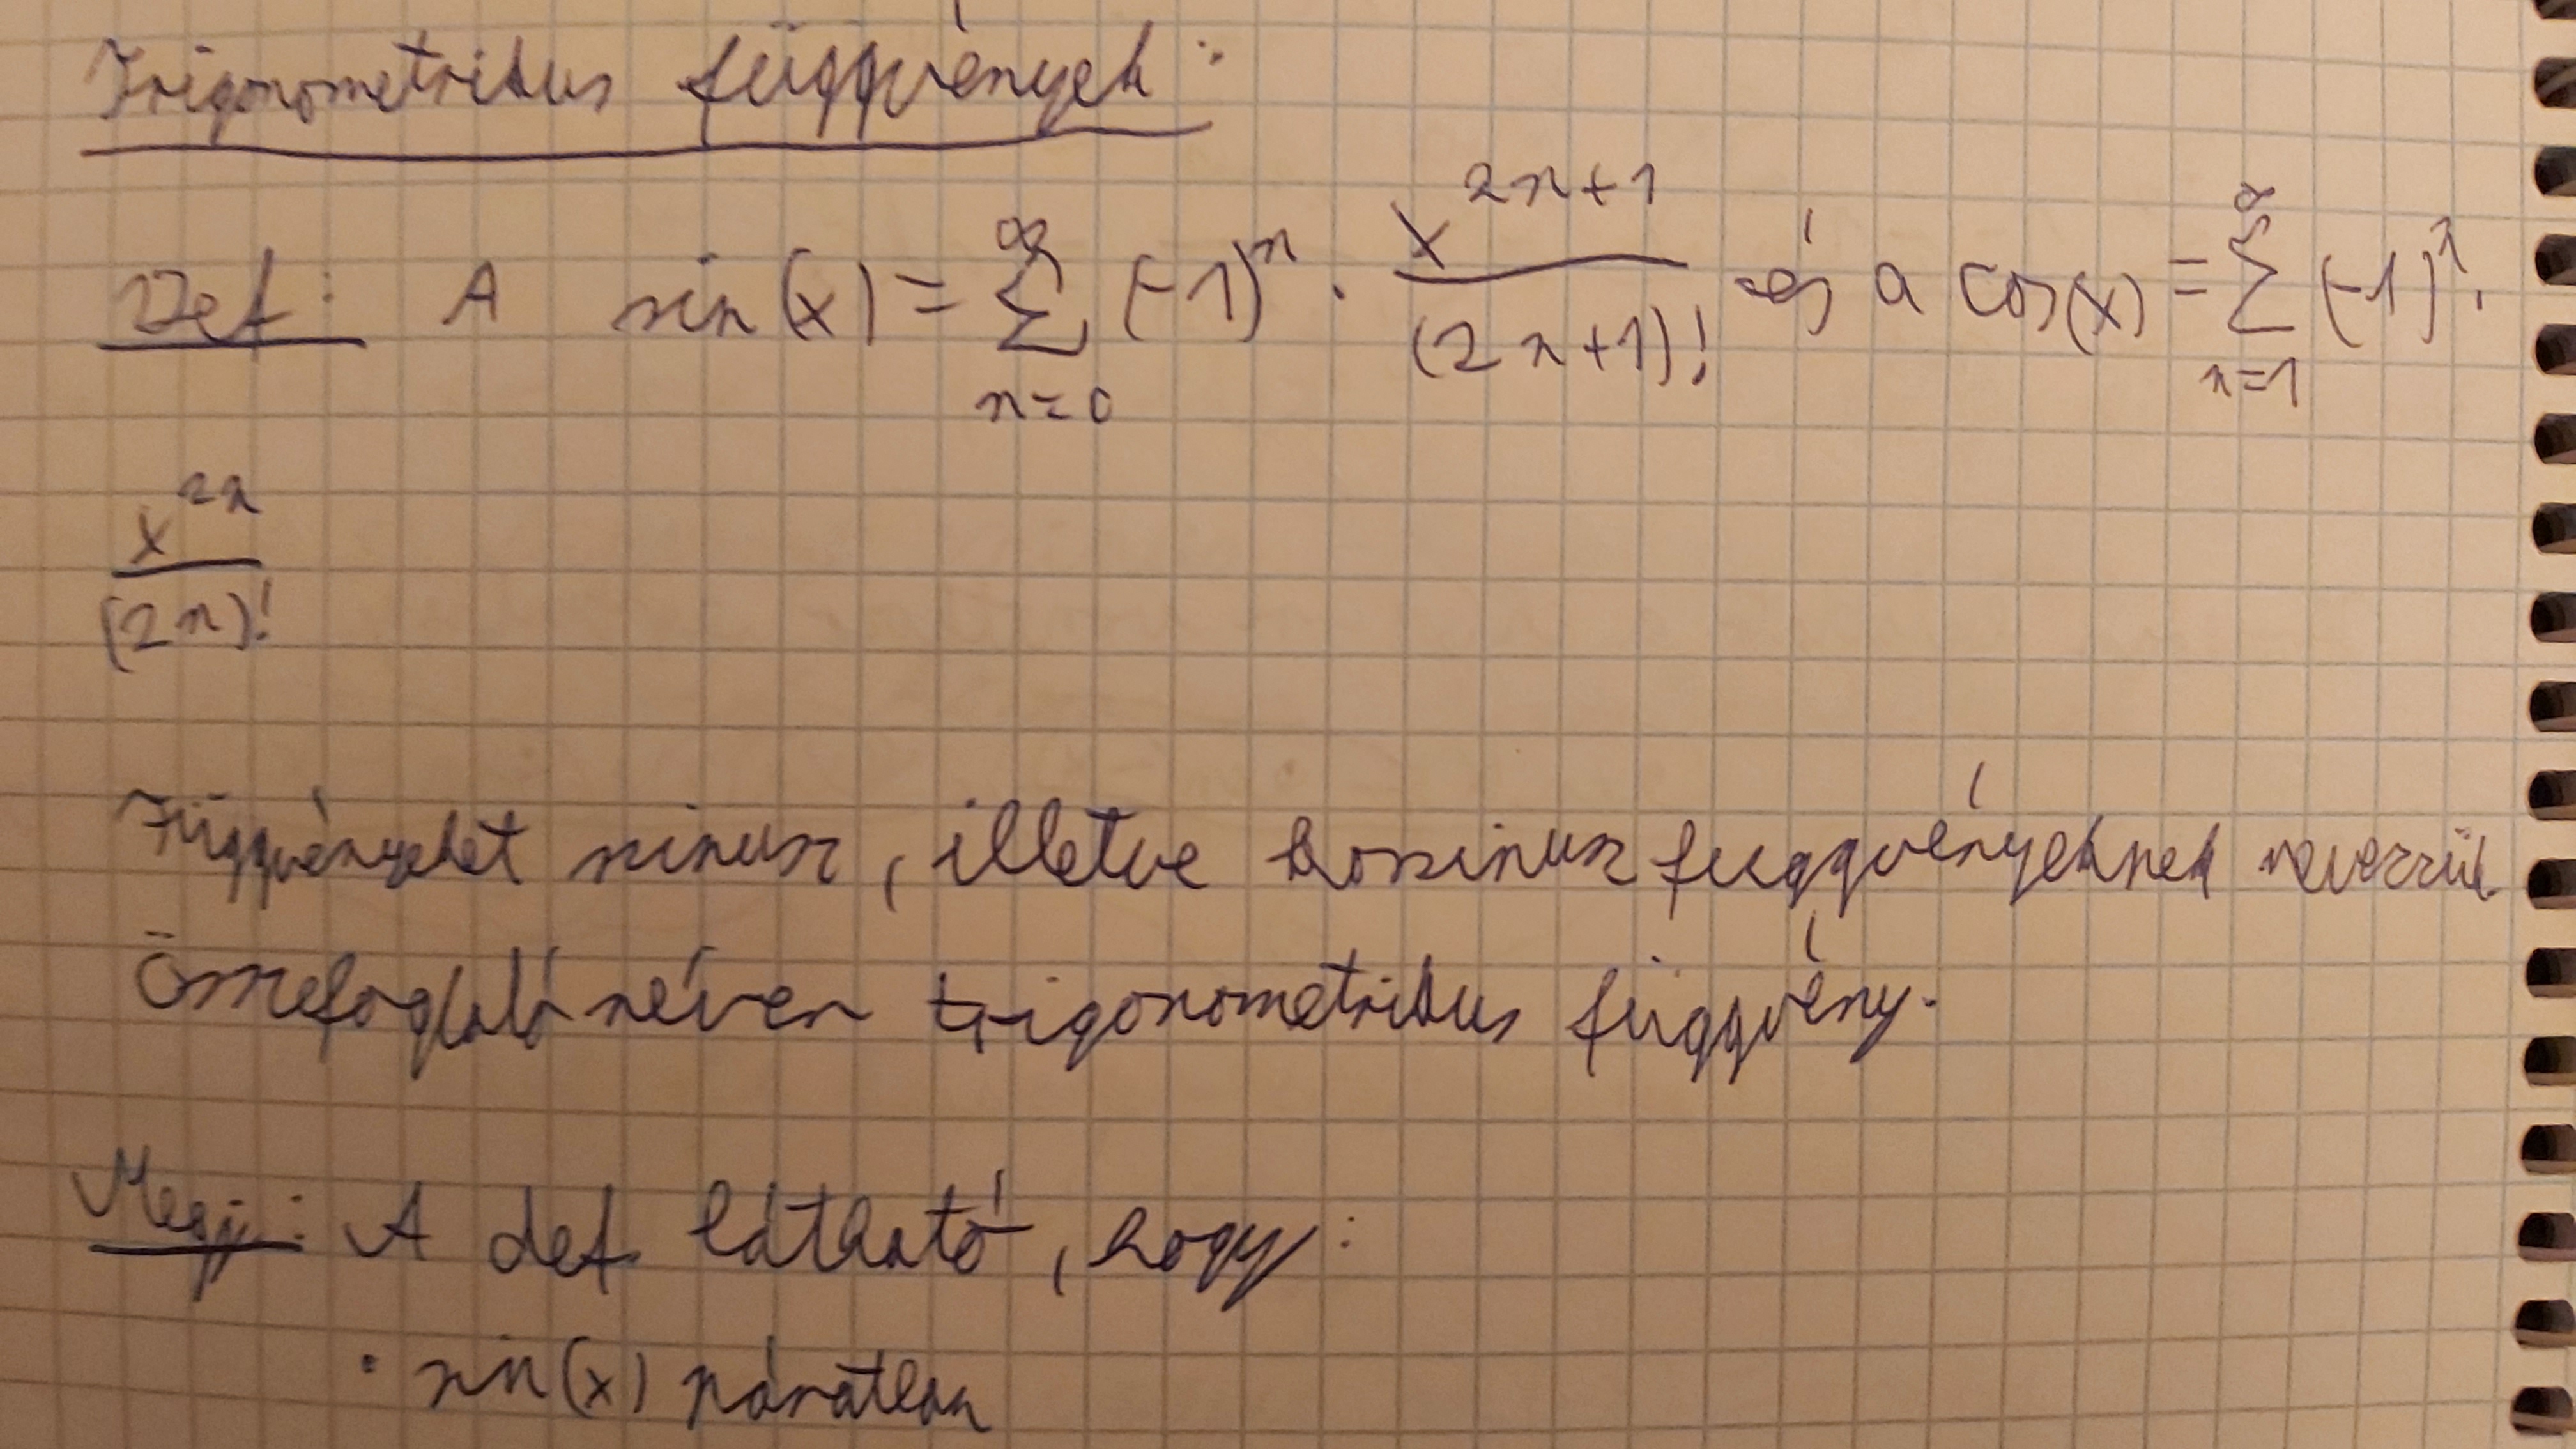 Trigonometrikus függvények:
Def: A sin(x) = ∑_{n=0}^{∞} (-1)^n · x^{2n+1}/(2n+1)! és a cos(x) = ∑_{n=1}^{∞} (-1)^n ·
x^{2n}/(2n)!
Függvényeket sinusz, illetve kossinusz függvényeknek nevezzük.
Összefoglaló néven trigonometrikus függvény.
Megj: A def látható, hogy:
· sin(x) páratlan